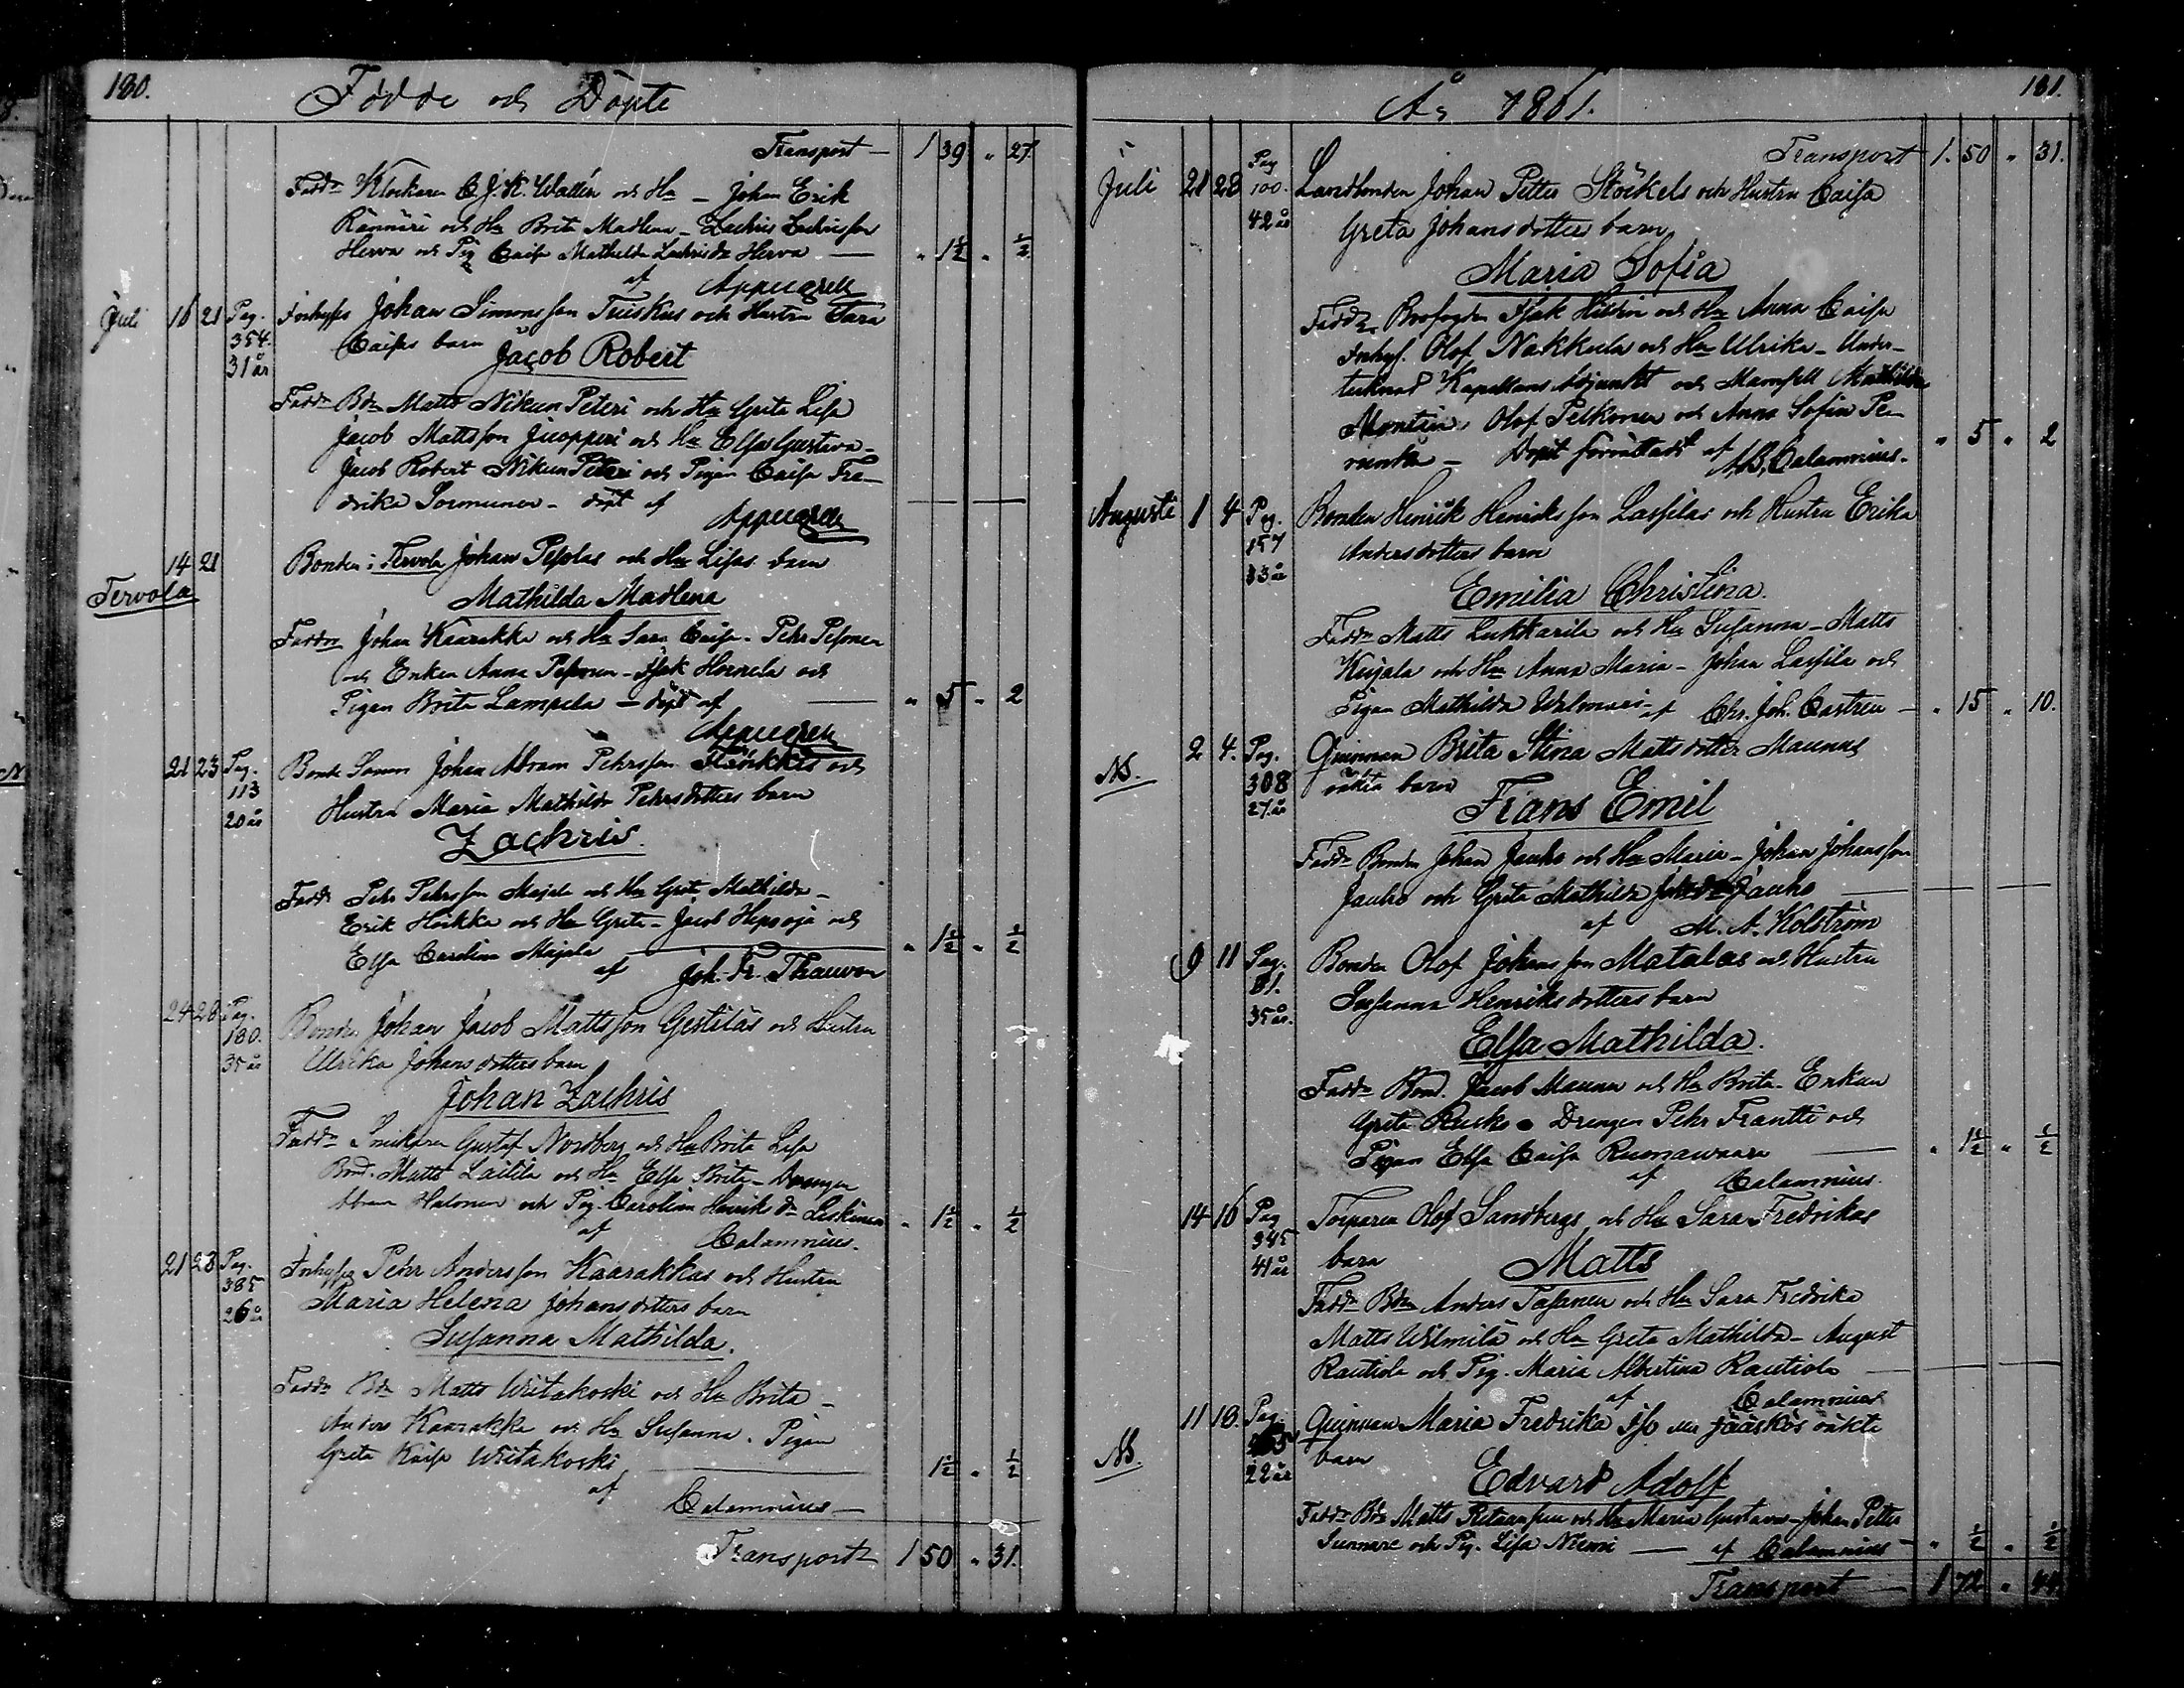 180.
Födde och Döpte
Transport — 1 39 " 27.
Fadd. Klockaren C. J. K. Wallén och Hu — Johan Erik
och Hu Brita Madlena — Zachris Zachrisson
Herva och Pig Caisa Mathilda Zachrisdr Herva — " 1½ " ½
af Appelgren
Juli 16 21 Pag. Inhyses Johan Simonsson Tuiskus och Hustru Sara
354. Caisas barn
31 år Jacob Robert
Fadd. Bdn Matts Nikun Peteri och Hu Greta Lisa
Jacob Mattsson och Hu Elsa Gustava —
Jacob Robert Nikun Peteri och Pigan Caisa Fre-
drika Sormunen — döpt af — —
Appelgren
14 21 Bonden i Tervola Johan Pesolas och Hu Lisas barn
Tervola
Mathilda Madlena
Faddr Johan Kaarakka och Hu Sara Caisa — Pehr Pesonen
och Enkan Anna Pesonen — Isak Hannila och
Pigan Brita Lampela — döpt af — " 5 " 2
Appelgren
21 23 Pag. Bonde Sonen Johan Abram Pehrsson och
113 Hustru Maria Mathilda Pehrsdotters barn
20 år
Zachris
Fadd Pehr Pehrsson Majala och Hu Greta Mathilda —
Erik Heikka och Hu Greta — Jacob Hepooja och
Elsa Carolina Majala — " 1½ " ½
af Joh. Fr. Thauvon
24 28 Pag. Bonden Johan Jacob Mattsson Gestiläs och Hustru
180. Ulrika Johansdotters barn
35 år
Johan Zachris
Fadd. Snickaren Gustaf Nordberg och Hu Brita Lisa
Bond. Matts Laitila och Hu Elsa Brita — Drengen
Abram Halonen och Pig. Carolina Henriksdr Leskinen " 1½ " ½
af Calamnius.
21 28 Pag. Inhyses Pehr Andersson Kaarakkas och Hustru
385 Maria Helena Johansdotters barn
26 år
Susanna Mathilda.
Fadd. Bdn Matts Wiitakoski och Hu Brita —
Anders Kaarakka och Hu Susanna. Pigan
Greta Kaisa Wiitakoski — 1½ " ½
af Calamnius —
Transport 1 50 " 31.
181.
År 1861.
Transport 1. 50 " 31.
Juli 21 28 Pag 100. Landbonden Johan Petter Stöckels och Hustru Caisa
42 år Greta Johansdotters barn
Maria Sofia
Fadd. Isak och Hu Anna Caisa
Inhys. Olof Nakkula och Hu Ulrika — Under-
tecknad Kapellans Adjunkt och Mamsell Mathilda
Montin, Olof Pelkonen och Anna Sofia
— Dopet förrättadt af " 5 " 2
A.B. Calamnius.
Augusti 1 4 Pag. Bonden Henrik Henriksson Lassilas och Hustru Erika
157 Andersdotters barn
33 år
Emilia Christina.
Fadd. Matts Lukkarila och Hu Susanna — Matts
Kujala och Hu Anna Maria — Johan Lassila och
Pigan Mathilda Welmari — af Chr. Joh. Castren — " 15 " 10.
2 4. Pag. Qvinnan Brita Stina Mattsdotter Maunus
NB. 308 oäkta barn
27 år
Frans Emil
Fadd. Bonden Johan Jauho och Hu Maria — Johan Johansson
Jauho och Greta Mathilda Johsdr Jauho — — —
af M. A. Kolström
9 11 Pag. Bonden Olof Johansson Matalas och Hustru
81. Susanna Henriksdotters barn
35 år.
Elsa Mathilda.
Fadd. Bond. Jacob Maunu och Hu Brita — Enkan
Greta Rusko — Drengen Pehr Frantti och
Pigan Elsa Caisa Ruonawaara — " 1½ " ½
af Calamnius.
14 16 Pag Torparen Olof Sandbergs och Hu Sara Fredrikas
345 barn
41 år
Matts
Fadd. Bdn Anders Tapanen och Hu Sara Fredrika
Matts Wilmilä och Hu Greta Mathilda — August
Rautiola och Pig. Maria Albertina Rautiola — — —
af Calamnius
11 18. Pag. Qvinnan Maria Fredrika Jääskös oäkta
NB. barn
22 år
Edvard Adolf
Fadd. Bdn Matts och Hu Maria Gustava — Johan Petter
Sunnare och Pig. Lisa Niemi — af Calamnius — " ½ " ½
Transport — 1 72 " 44.